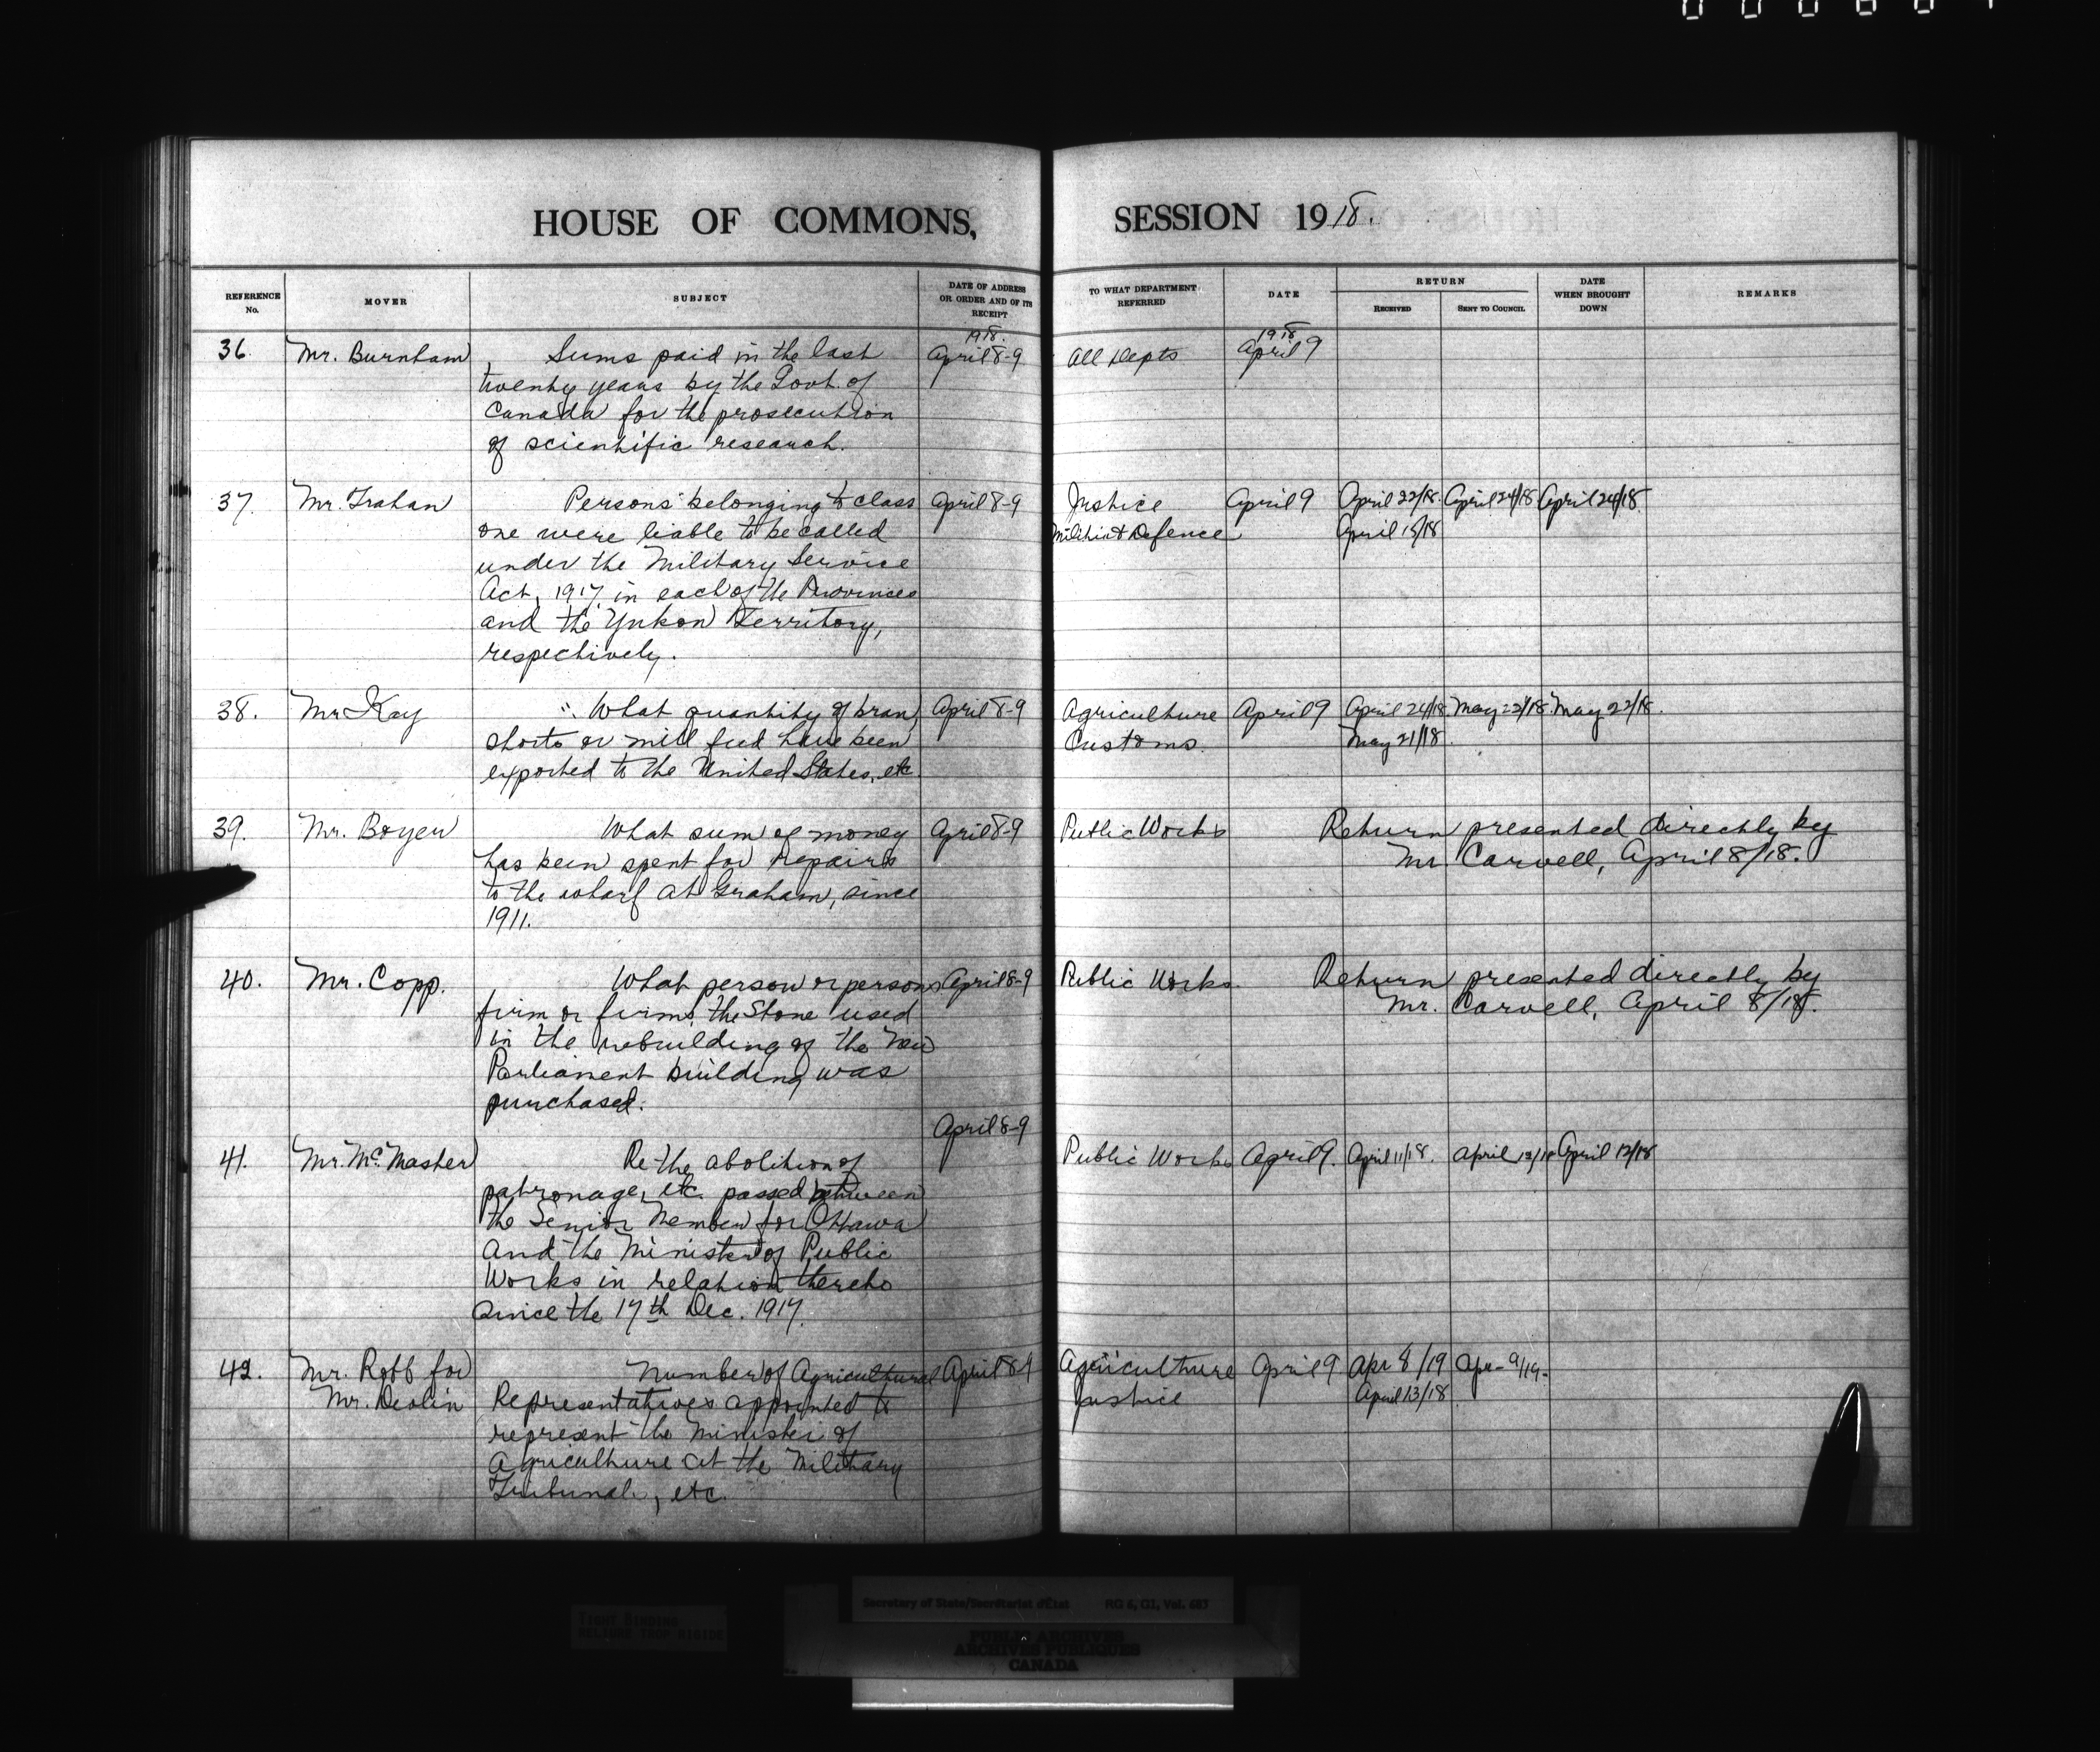 HOUSE OF COMMONS, SESSION 1918.
REFERENCE No.
MOVER
SUBJECT
DATE OF ADDRESS OR ORDER AND OF ITS RECEIPT
TO WHAT DEPARTMENT REFERRED
DATE
RETURN
RECEIVED
SENT TO COUNCIL
DATE WHEN BROUGHT DOWN
REMARKS
1918. 1918
36. Mr. Burnham Sums paid in the last April 8-9 All Depts April 9
twenty years by the Govt. of
Canada for the prosecution
of scientific research.
37. Mr. Trahan Persons belonging to class April 8-9 Justice April 9 April 22/18. April 24/18 April 24/18.
one were liable to be called Militia & Defence April 15/18
under the Military Service
Act, 1917, in each of the Provinces
and the Yukon Territory,
respectively.
38. Mr Kay What quantity of bran April 8-9 Agriculture April 9 April 24/18 May 22/18. May 22/18.
shorts or mill feed have been Customs. May 21/18.
exported to the United States, etc.
39. Mr. Boyer What sum of money April 8-9 Public Works Return presented directly by
has been spent for repairs Mr Carvell, April 8/18.
to the wharf at Graham, since
1911.
40. Mr. Copp. What person or persons April 8-9 Public Works. Return presented directly by
firm or firms, the Stone used Mr. Carvell, April 8/18.
in the rebuilding of the new
Parliament building was
purchased.
April 8-9
41. Mr. McMaster Re the abolition of Public Works April 9. April 11/18. April 12/18 April 12/18
patronage, etc. passed between
the Senior Member for Ottawa
and the Minister of Public
Works in relation thereto
since the 17th Dec. 1917.
42. Mr. Robb for Number of Agricultural April 8-9 Agriculture April 9 Apr 8/19 Apr- 9/19-
Mr. Devlin Representatives appointed to Justice April 13/18.
represent the Minister of
Agriculture at the Military
Tribunals, etc.
Secretary of State/Secrétariat d'État RG 6, GI, Vol. 683
TIGHT BINDING
RELIURE TROP RIGIDE
PUBLIC ARCHIVES
ARCHIVES PUBLIQUES
CANADA